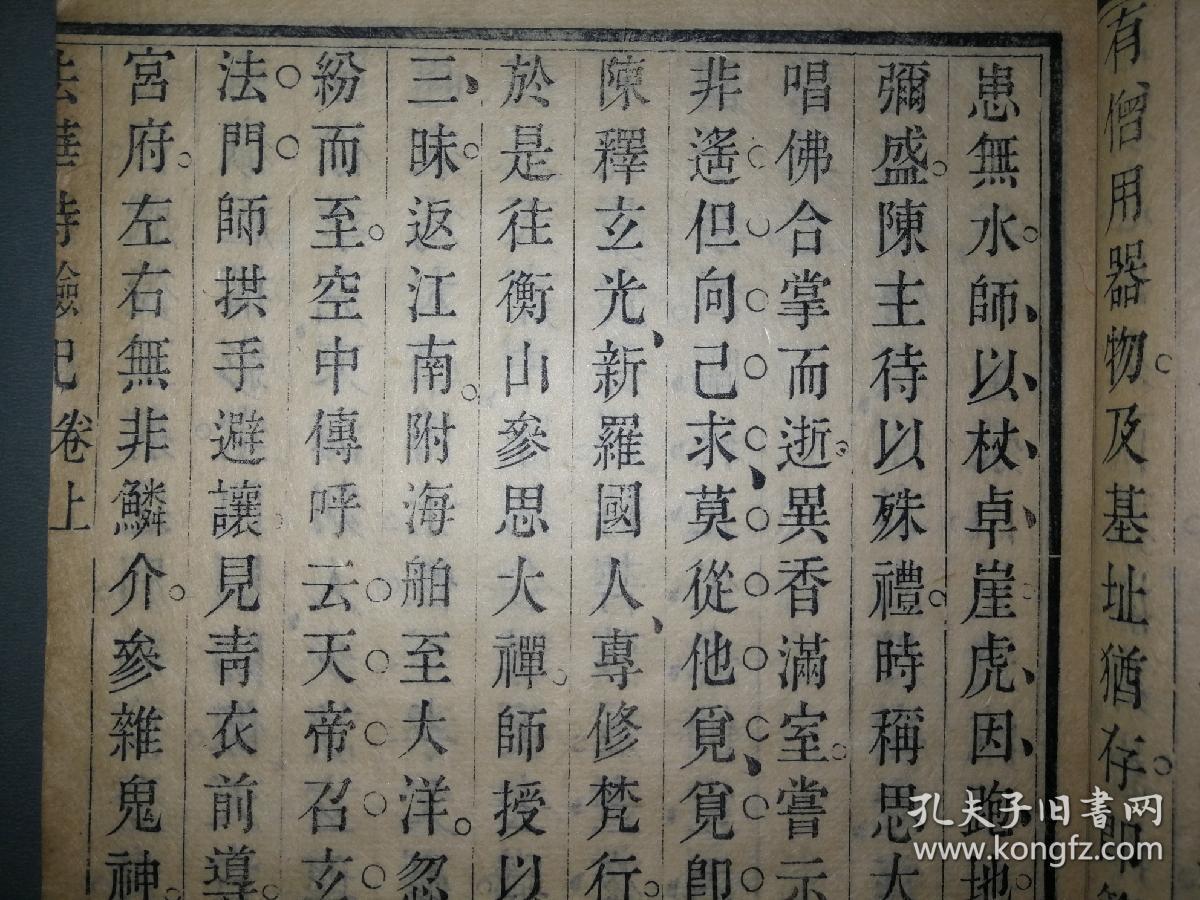 有僧用器物及基址猶存即
患無水。師以杖卓崖虎因跑地。
彌盛。陳主待以殊禮。時稱思大
唱佛合掌而逝。異香滿室。嘗示
非遙但向己求莫從他覓覓即
陳釋玄光、新羅國人、專修梵行。
於是往衡山參思大禪。師授以
三昧。返江南。附海舶至大洋。忽
紛而至。空中傳呼云天帝召玄
法門師拱手避讓見青衣前導。
宮府。左右無非鱗介。參雜鬼神。
法華持驗記卷上
孔夫子旧書网
www.kongfz.com